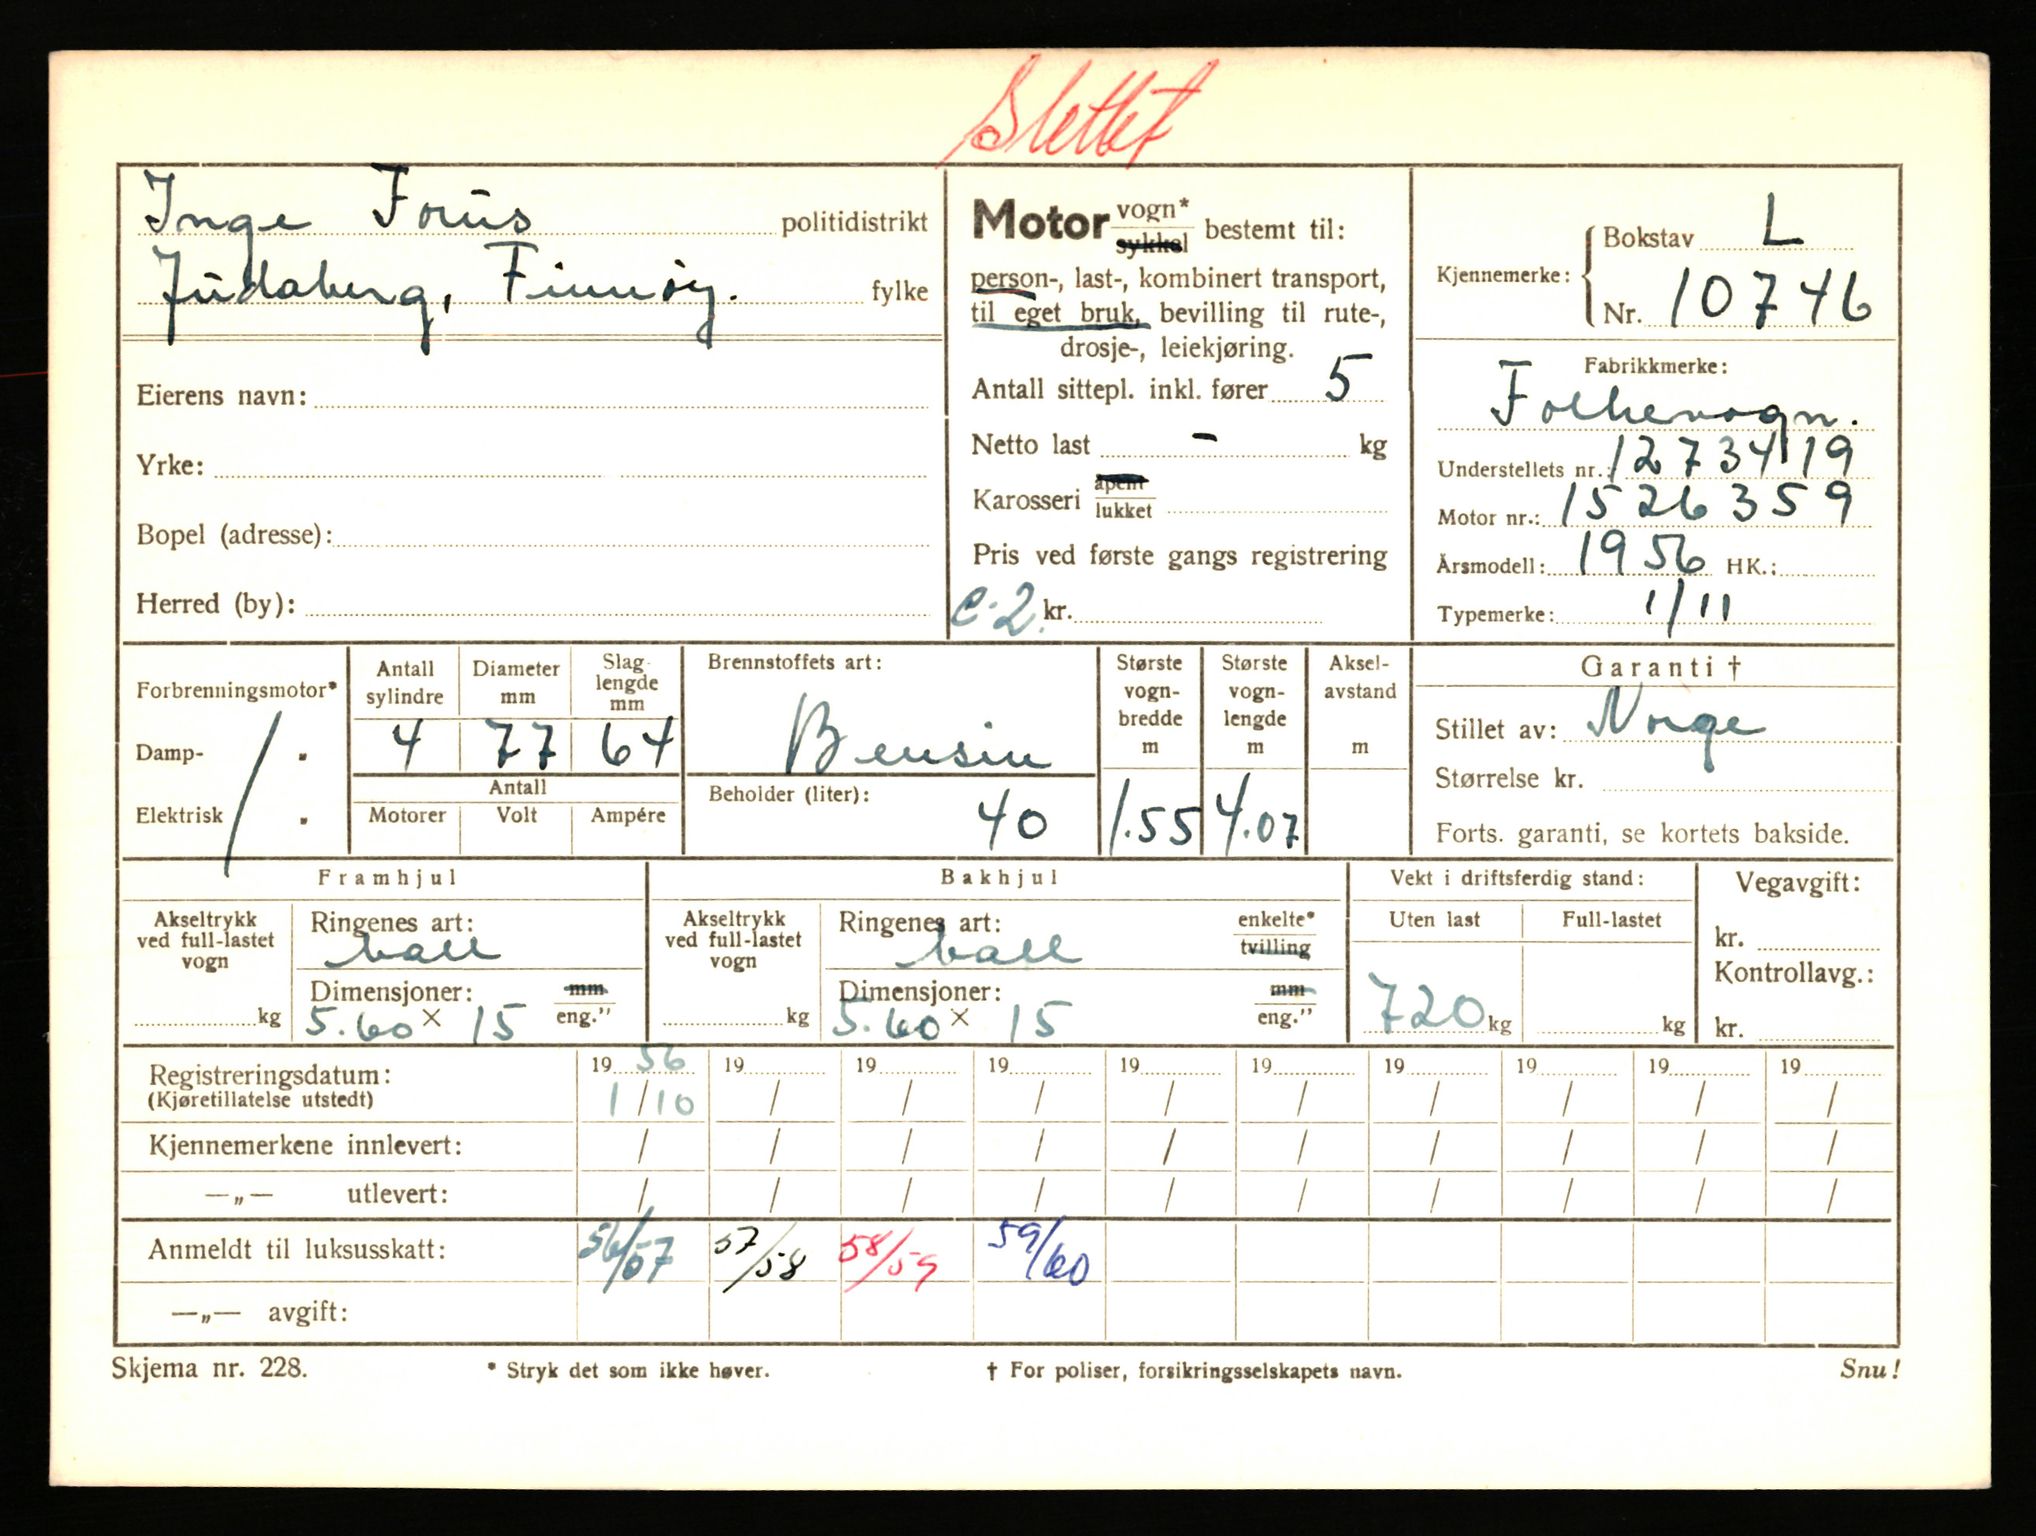 Slettet
Inge Forus politidistrikt
Judaberg, Finnøy. fylke
Eierens navn:
Yrke:
Bopel (adresse):
Herred (by):
Motor vogn* sykkel bestemt til:
person-, last-, kombinert transport,
til eget bruk, bevilling til rute-,
drosje-, leiekjøring.
Antall sittepl. inkl. fører 5
Netto last - kg
Karosseri åpent lukket
Pris ved første gangs registrering
c-2. kr.
Kjennemerke: Bokstav L
Nr. 10746
Fabrikkmerke:
Folkevogn.
Understellets nr.: 12734119
Motor nr.: 1526359
Årsmodell: 1956 HK.:
Typemerke: 1/11
Forbrenningsmotor*
Damp- "
Elektrisk "
Antall sylindre Diameter mm Slaglengde mm
4 77 64
Antall
Motorer Volt Ampére
Brennstoffets art:
Bensin
Beholder (liter):
40
Største vogn-bredde m
1.55
Største vogn-lengde m
4.07
Aksel-avstand m
Garanti †
Stillet av: Norge
Størrelse kr.
Forts. garanti, se kortets bakside.
Framhjul
Akseltrykk ved full-lastet vogn
kg
Ringenes art:
ball
Dimensjoner: mm
5.60 × 15 eng."
Bakhjul
Akseltrykk ved full-lastet vogn
kg
Ringenes art: enkelte*
ball tvilling
Dimensjoner: mm
5.60 × 15 eng."
Vekt i driftsferdig stand:
Uten last Full-lastet
720 kg kg
Vegavgift:
kr.
Kontrollavg.:
kr.
Registreringsdatum: 19 56 19 19 19 19 19 19 19 19 19
(Kjøretillatelse utstedt) 1/10 / / / / / / / / /
Kjennemerkene innlevert: / / / / / / / / / /
—„— utlevert: / / / / / / / / / /
Anmeldt til luksusskatt: 56/57 57/58 58/59 59/60
—„— avgift:
Skjema nr. 228. * Stryk det som ikke høver. † For poliser, forsikringsselskapets navn. Snu!